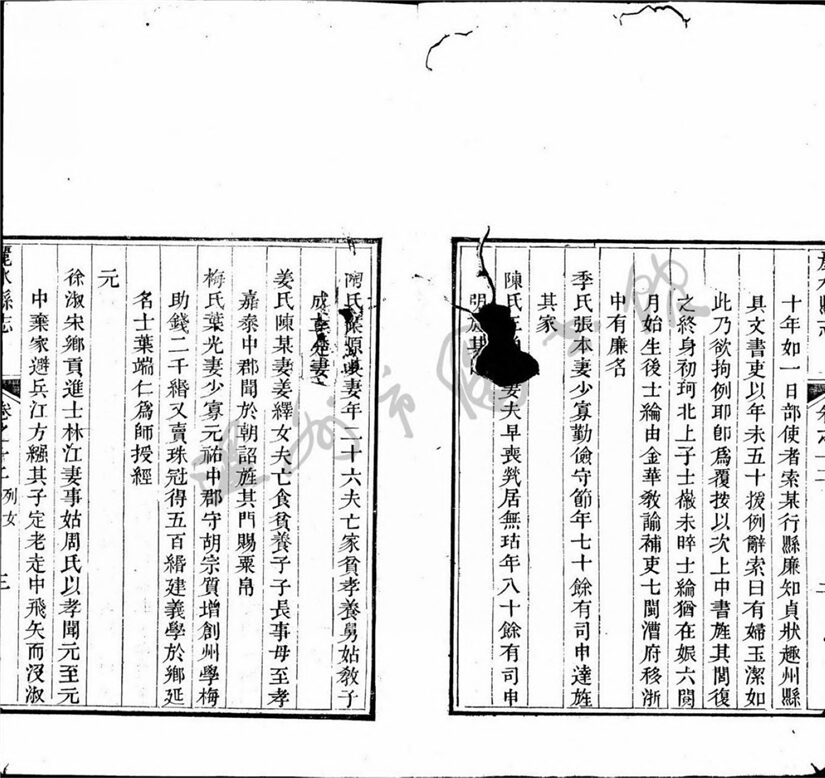 十年如一日部使者索某行縣廉知貞狀趣州縣
具文書吏以年未五十援例辭索曰有婦玉潔如
此乃欲拘例耶卽爲覆按以次上中書旌其閭復
之終身初珂北上子士嶶未晬士綸猶在娠六閱
月始生後士綸由金華敎諭補吏七閩漕府移浙
中有廉名
季氏張本妻少寡勤儉守節年七十餘有司申達旌
其家
陳氏妻夫早喪煢居無玷年八十餘有司申
明旌其
陶氏源妻年二十六夫亡家貧孝養舅姑敎子
成
姜氏陳某妻姜繹女夫亡食貧養子子長事母至孝
嘉泰中郡聞於朝詔旌其門賜粟帛
梅氏葉光妻少寡元祐中郡守胡宗質增創州學梅
助錢二千緡又賣珠冠得五百緡建義學於鄉延
名士葉端仁爲師授經
元
徐淑宋鄉貢進士林江妻事姑周氏以孝聞元至元
中棄家避兵江方繦其子定老走中飛矢而沒淑
麗水縣志
卷之十二 列女
三